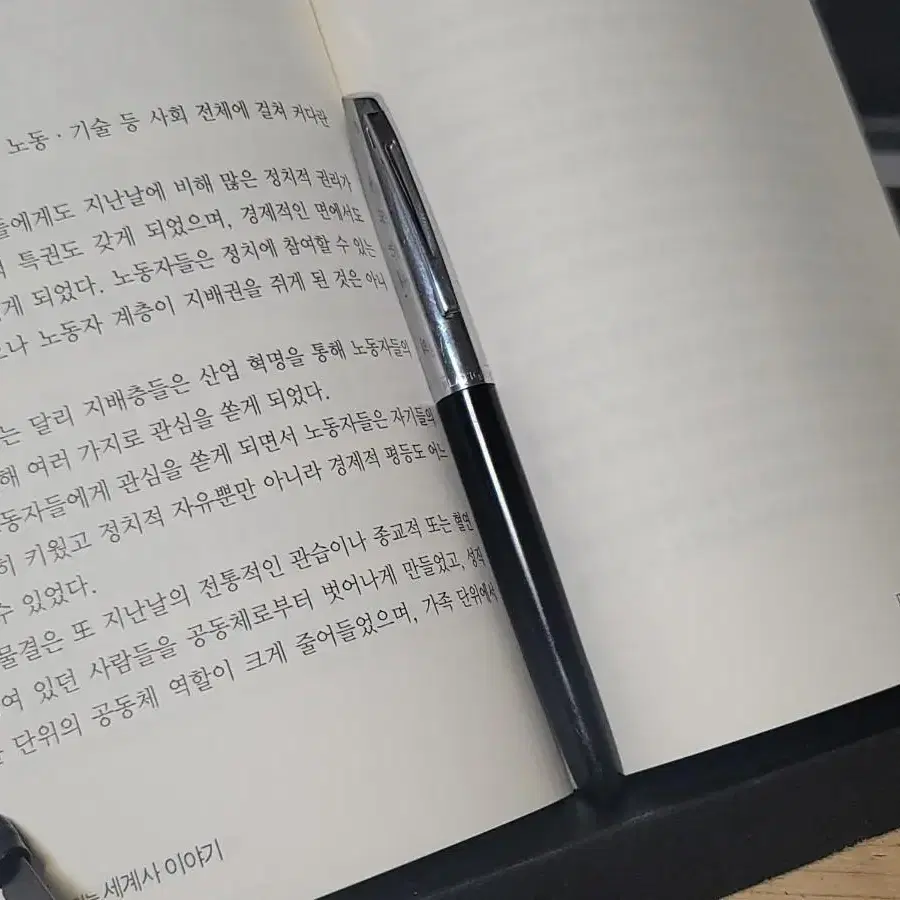 노동·기술 등 사회 전체에 걸쳐 커다란
들에게도 지난날에 비해 많은 정치적 권리가
특권도 갖게 되었으며, 경제적인 면에서도
게 되었다. 노동자들은 정치에 참여할 수 있는
나 노동자 계층이 지배권을 쥐게 된 것은 아니
는 달리 지배층들은 산업 혁명을 통해 노동자들의
해 여러 가지로 관심을 쏟게 되었다.
동자들에게 관심을 쏟게 되면서 노동자들은 자기들의
히 키웠고 정치적 자유뿐만 아니라 경제적 평등도 어느
수 있었다.
물결은 또 지난날의 전통적인 관습이나 종교적 또는 혈연
여 있던 사람들을 공동체로부터 벗어나게 만들었고, 성직
단위의 공동체 역할이 크게 줄어들었으며, 가족 단위에서
세계사 이야기